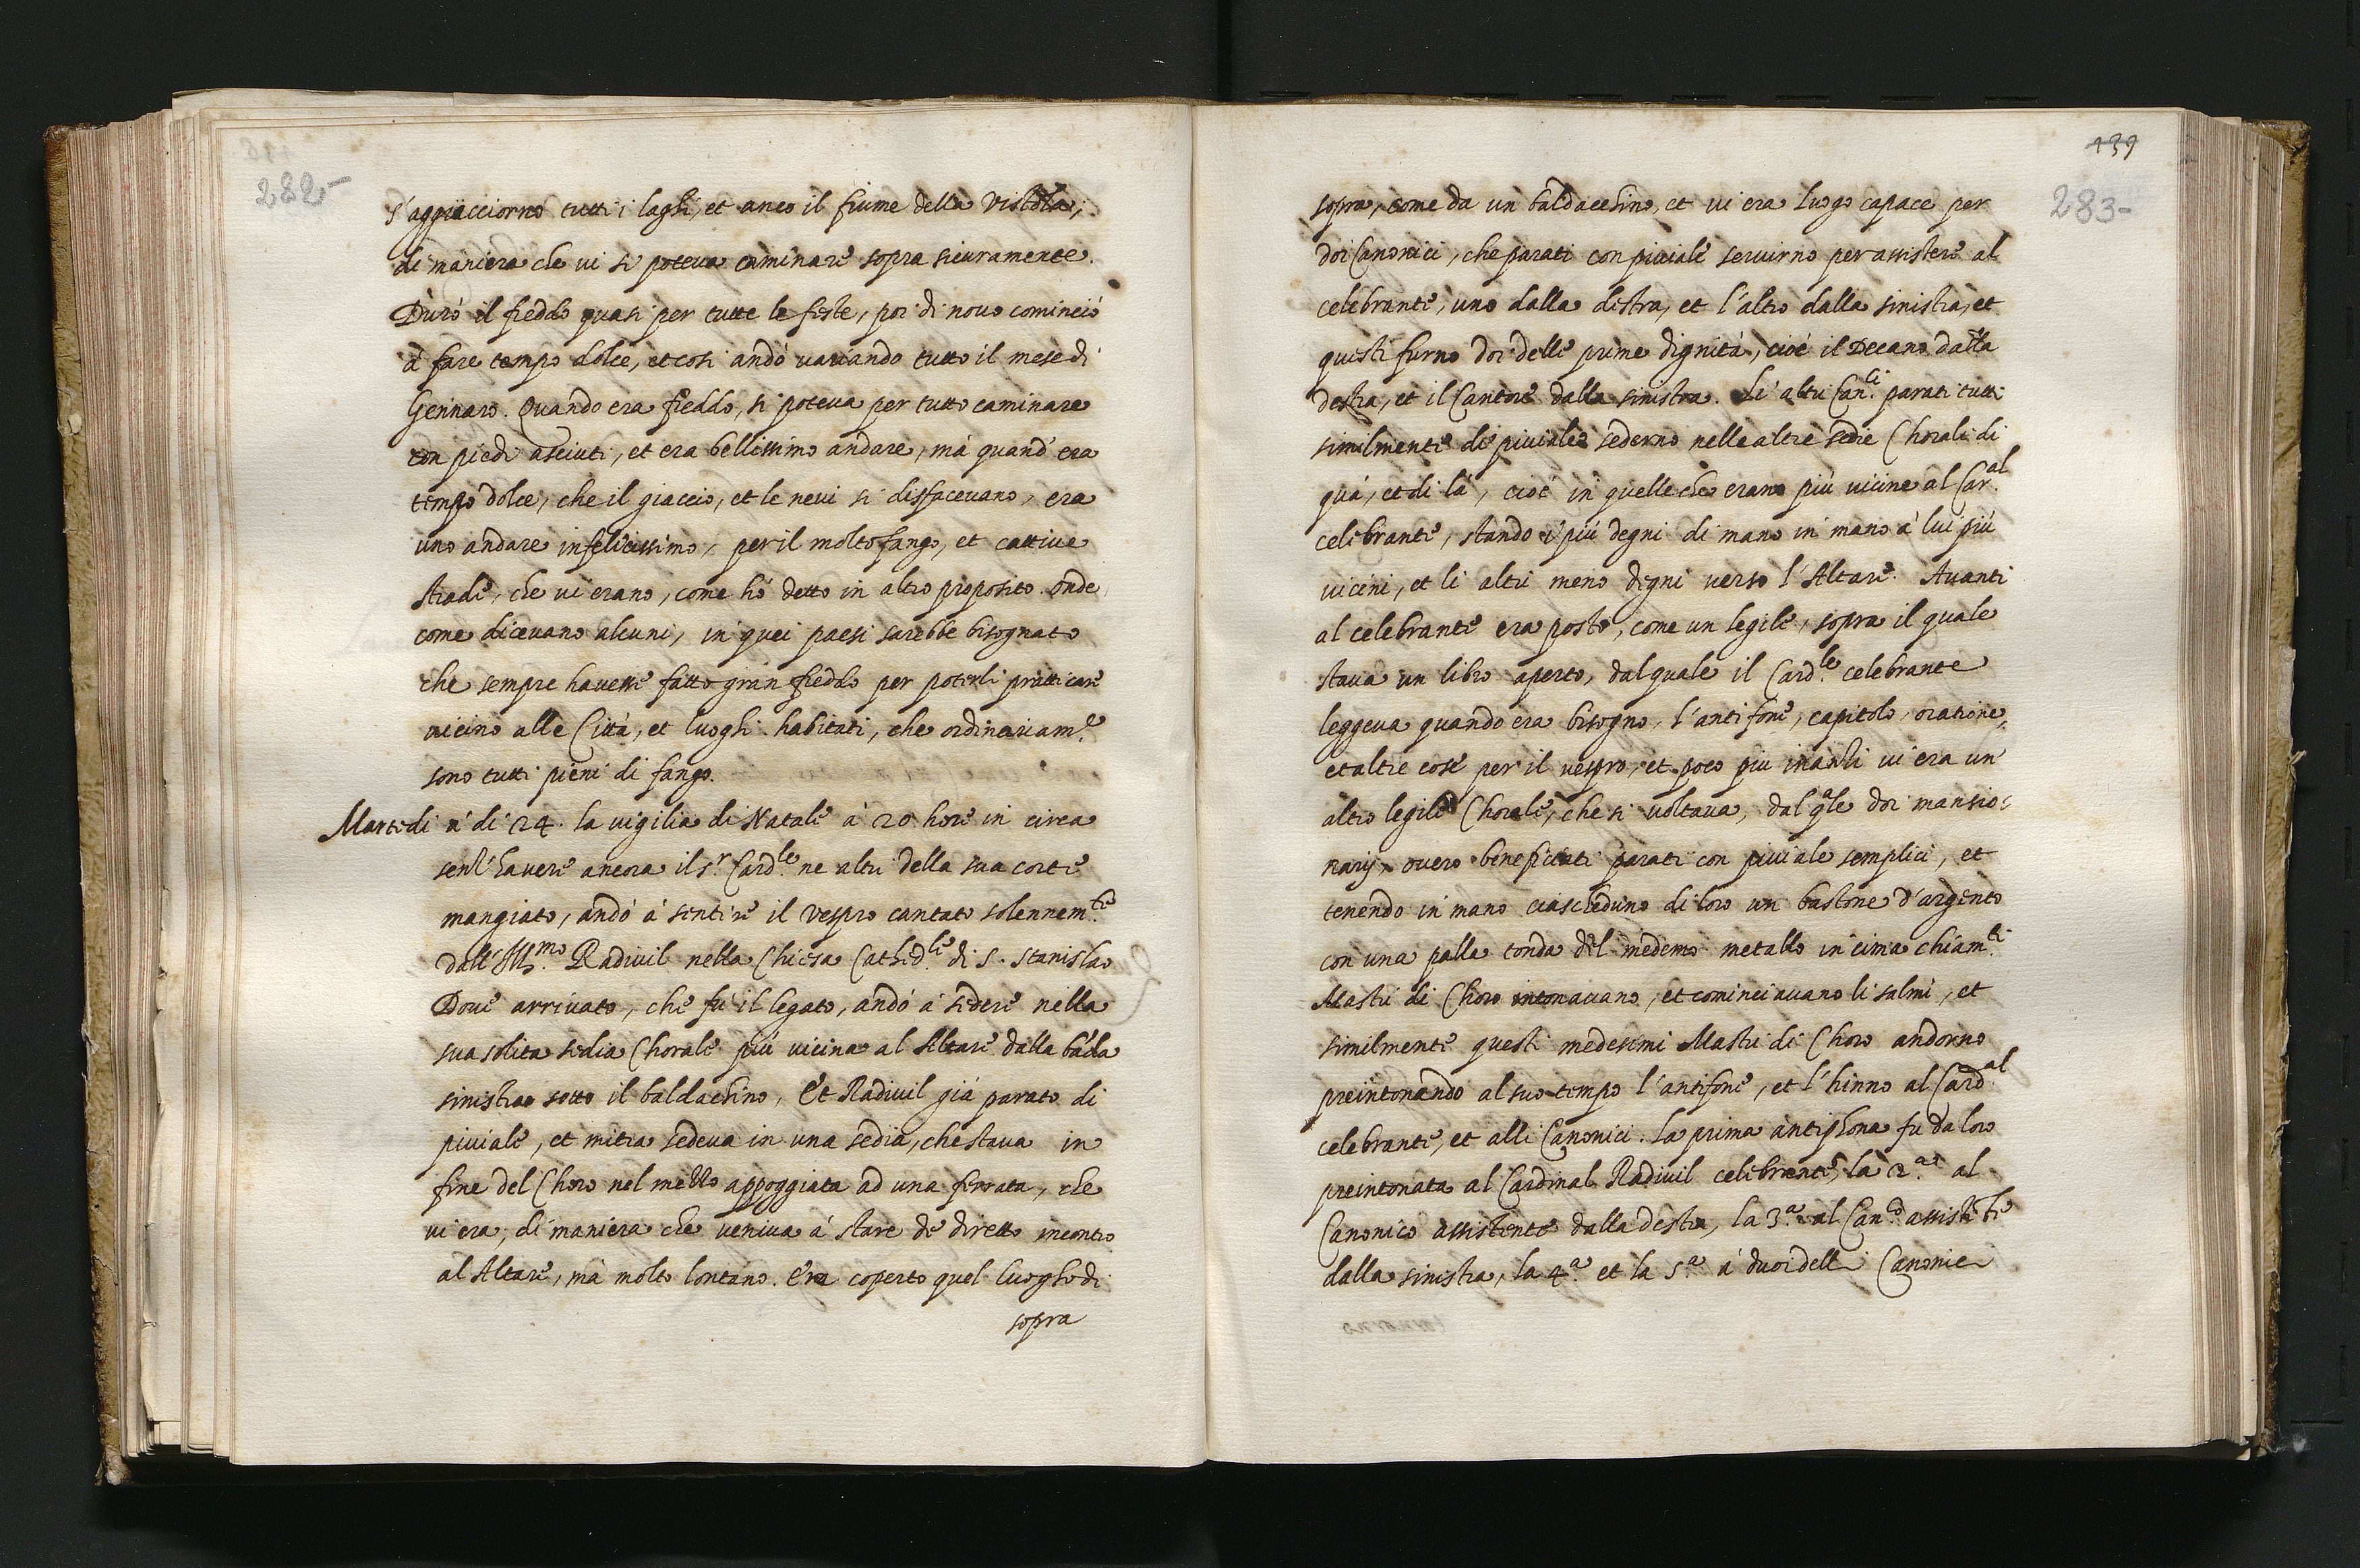 282
s'aggiacciorno tutti i laghi, et anco il fiume della Vistola;
di maniera che vi si poteva caminare sopra sicuramente.
Durò il freddo quasi per tutte le feste, poi di novo cominciò
à fare tempo dolce, et così andò variando tutto il mese di
Gennaro. Quando era freddo, si poteva per tutto caminare
con piedi asciuti, et era bellissimo andare, mà quand'era
tempo dolce, che il giaccio, et le nevi si disfacevano, era
uno andare infelicissimo, per il molto fango, et cattive
strade, che vi erano, come hò detto in altro proposito. onde
come dicevano alcuni, in quei paesi sarebbe bisognato
che sempre havesse fatto gran freddo per poterli pratticare
vicino alle Città, et luoghi habitati, che ordinariam.e
sono tutti pieni di fango.
Martedi a' di 24. la vigilia di Natale à 20 hore in circa
senz'havere ancora il s.r Card.le ne altri della sua corte
mangiato, andò à sentire il Vespro cantato solennem.te
dall'Ill.mo Radivil nella Chiesa Cathed.le di S. Stanislao
Dove arrivato, che fù il legato, andò a' sedere nella
sua solita sedia Chorale più vicina al Altare dalla bãda
sinistra sotto il baldachino, Et Radivil già parato di
piviale, et mitra sedeva in una sedia, che stava in
fine del Choro nel mezzo appoggiata ad una ferrata, che
vi era, di maniera che veniva à stare de diretto incontro
al Altare, mà molto lontano. Era coperto quel luogho di
sopra
139
283
sopra, come da un baldacchino, et vi era luogo capace per
doi Canonici, che parati con piviale servirno per assistere al
celebrante, uno dalla destra, et l'altro dalla sinistra, et
questi furno doi delle prime dignità, cioè il Decano dalla
destra, et il Cantore dalla sinistra. Li altri Can.ci parati tutti
similmente di piviale sederno nelle altre sedie Chorali di
quà, et di là, cioè in quelle che erano più vicine al Car.al
celebrante, stando i più degni di mano in mano à lui più
vicini, et li altri meno degni verso l'Altare. Avanti
al celebrante era posto, come un legile, sopra il quale
stava un libro aperto, dal quale il Card.le celebrante
leggeva quando era bisogno, l'antifone, capitolo, oratione,
et altre cose per il vespro, et poco piu inanzi vi era un
altro legile Chorale, che si voltava, dal q.ale doi mansio:
narij, overo beneficiati parati con piviale semplici, et
tenendo in mano ciascheduno di loro un bastone d'argento
con una palla tonda del medemo metallo in cima chiam.ti
Mastri di Choro intonavano, et cominciavano li salmi, et
similmente questi medesimi Mastri di Choro andorno
preintonando al suo tempo l'antifone, et l'hinno al Card.al
celebrante, et alli Canonici. La prima antiphona fu da loro
preintonata al Cardinal Radivil celebrante, la 2.a al
Canonico assistente dalla destra, la 3.a al Can.co assistẽte
dalla sinistra, la 4.a et la 5.a à duoi delli Canonici